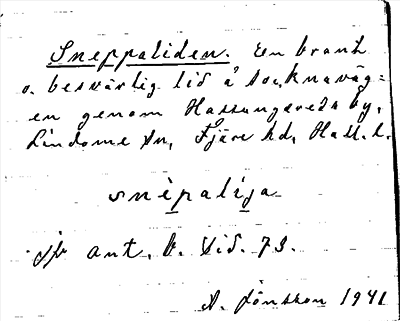 Sneppaliden. En brant
o. besvärlig lid å socknaväg-
en genom Hassungareds by,
Lindome sn, Fjäre hd, Hall. l.
snèpalíja
jfr ant. b. sid. 73.
A. Jönsson 1941